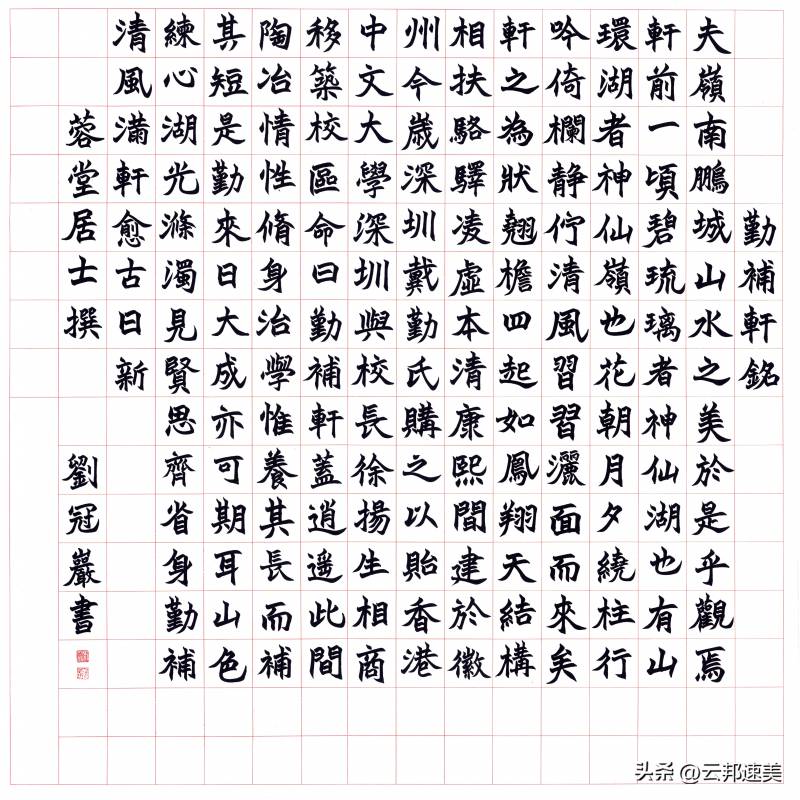 勤補軒銘
夫嶺南鵬城山水之美於是乎觀焉
軒前一頃碧琉璃者神仙湖也有山
環湖者神仙嶺也花朝月夕繞柱行
吟倚欄静佇清風習習灑面而來矣
軒之為狀翹檐四起如鳳翔天結構
相扶駱驛凌虛本清康熙間建於徽
州今歲深圳戴勤氏購之以貽香港
中文大學深圳與校長徐揚生相商
移築校區命曰勤補軒蓋逍遥此間
陶冶情性脩身治學惟養其長而補
其短是勤來日大成亦可期耳山色
練心湖光滌濁見賢思齊省身勤補
清風滿軒愈古日新
蓉堂居士撰
劉冠巖書
头条 @云邦速美